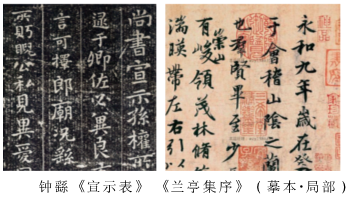 尚書宣示孫權所
逮于卿佐必冀良
言可擇郎廟況繇
盱睨公私見異愛
永和九年歲在癸
于會稽山陰之蘭
也羣賢畢至少
有崇山峻領茂林脩
湍暎帶左右引以
钟繇《宣示表》《兰亭集序》(摹本·局部)